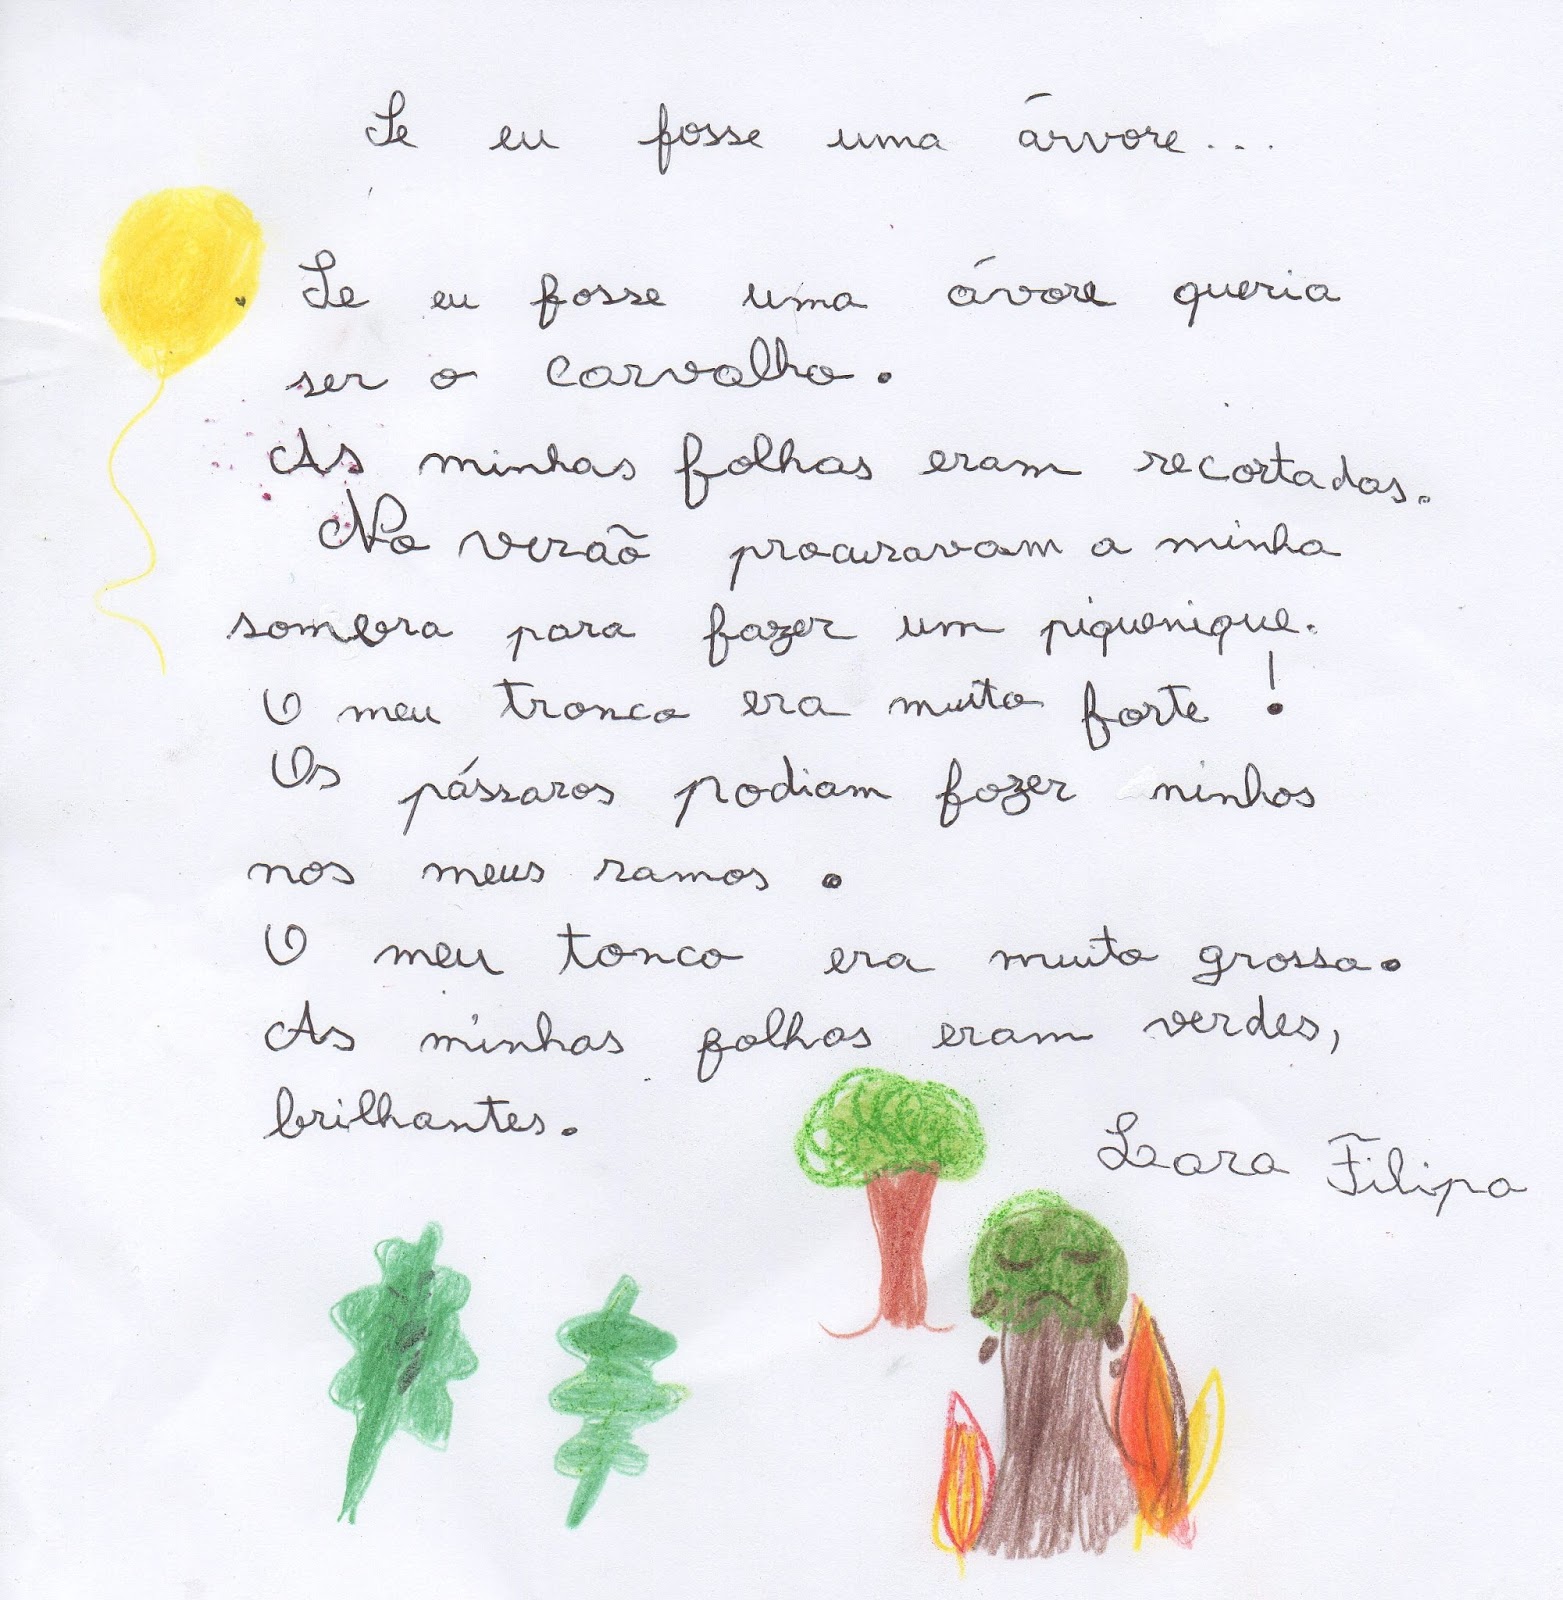 Se eu fosse uma árvore...
Se eu fosse uma ávore queria
ser o carvalho.
As minhas folhas eram recortadas.
No verão procuravam a minha
sombra para fazer um piquenique.
O meu tronco era muito forte!
Os pássaros podiam fazer ninhos
nos meus ramos.
O meu tonco era muito grosso.
As minhas folhas eram verdes,
brilhantes.
Lara Filipa